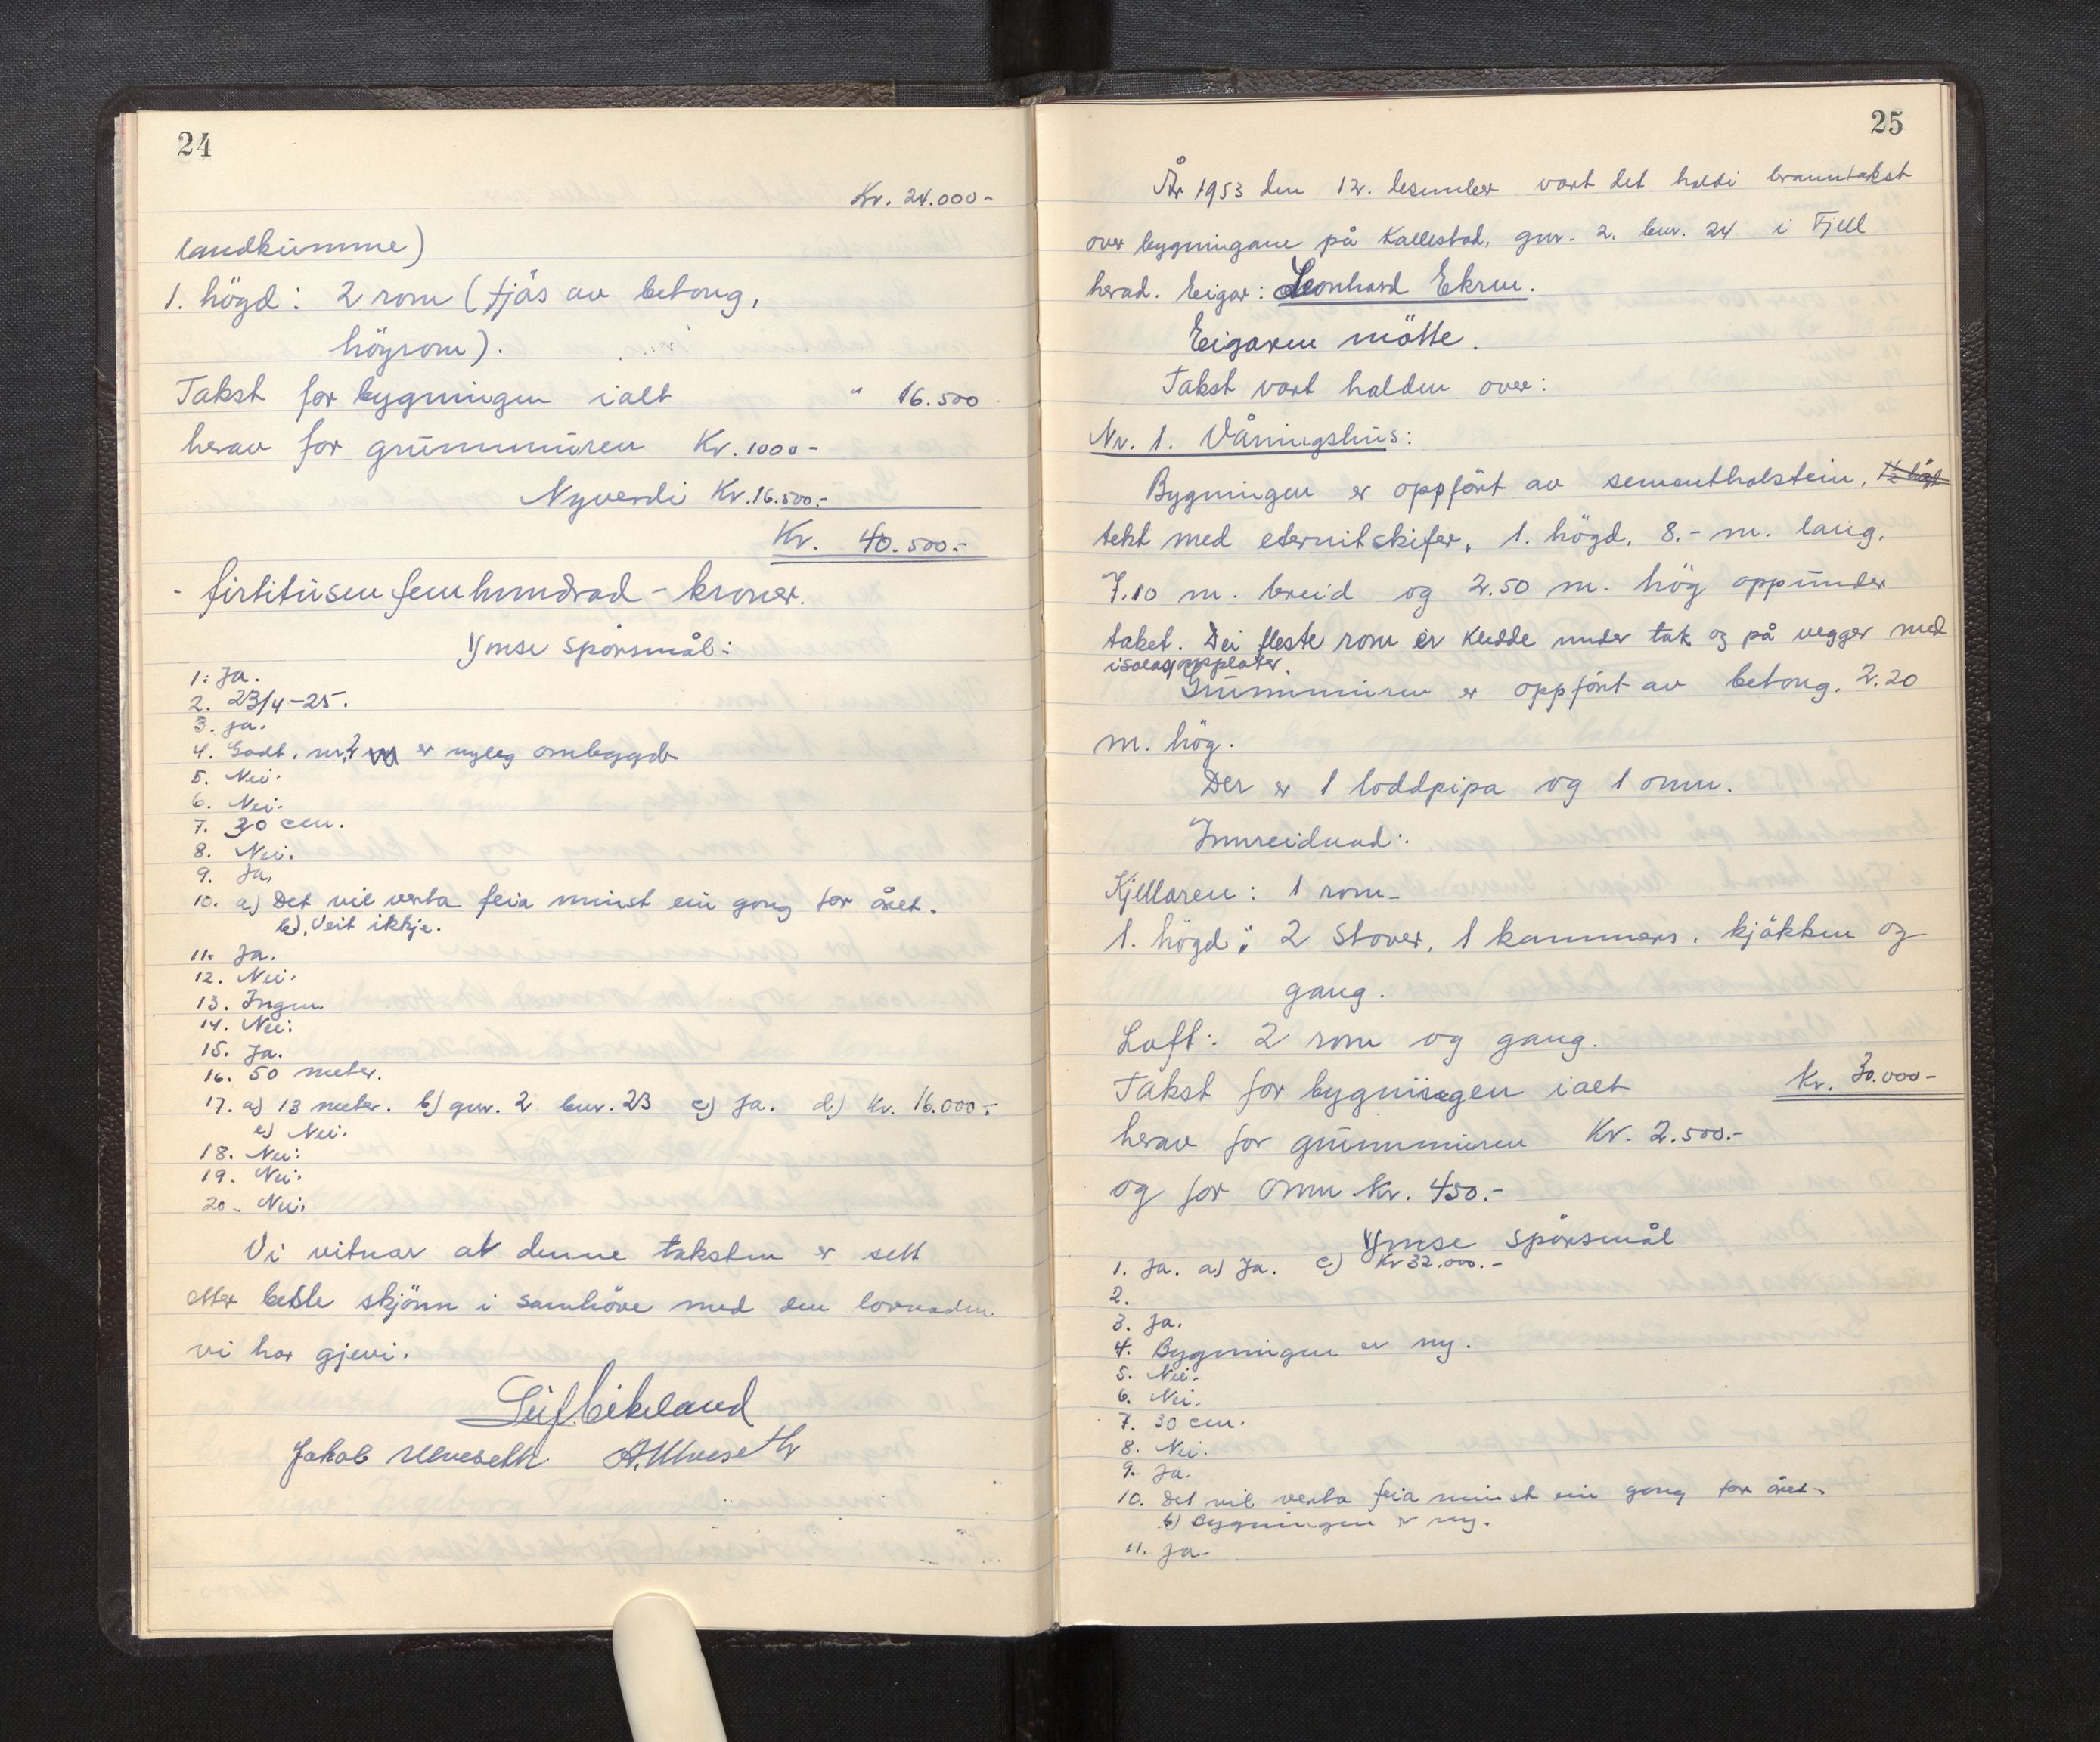 24
Kr. 24.000-
landkumme)
1. högd: 2 rom (fjös av betong,
höyrom).
Takst for bygningen ialt " 16.500
herav for grunnmuren Kr. 1000-
Nyverdi Kr. 16.500.-
Kr. 40.500.-
- firtitusen femhundrad - kroner.
Ymse spörsmål:
1. Ja.
2. 23/4-25.
3. ja.
4. Godt. nr. 2 er nyleg ombygd
5. Nei.
6. Nei.
7. 30 cm.
8. Nei.
9. Ja.
10. a) Det vil verta feia minst ein gong for året.
b). Veit ikkje.
11. Ja.
12. Nei.
13. Ingen
14. Nei.
15. Ja.
16. 50 meter.
17. a) 13 meter. b) gnr. 2 bnr. 23 c) Ja. d) Kr. 16.000.-
e) Nei.
18. Nei.
19. Nei.
20. Nei.
Vi vitnar at denne taksten er sett
etter beste skjönn i samhöve med den lovnaden
vi har gjevi.
Leif Eikeland
Jakob Ulveseth A. Ulveseth
25
År 1953 den 12. desember vart det haldi branntakst
over bygningane på Kallestad, gnr. 2. bnr. 24 i Fjell
herad. Eigar: Leonhard Ekren.
Eigaren mötte.
Takst vart halden over:
Nr. 1. Våningshus:
Bygningen er oppfört av sementholstein, 1½ högd
tekt med eternitskifer, 1. högd. 8.- m. lang.
7.10 m. breid og 2.50 m. hög oppunder
taket. Dei fleste rom er kledde under tak og på vegger med
isolasjonsplater.
Grunnmuren er oppfört av betong. 2.20
m. hög.
Der er 1 loddpipa og 1 omn.
Innreidnad:
Kjellaren: 1 rom.
1. högd: 2 stover, 1 kammers. kjökken og
gang.
Loft: 2 rom og gang.
Takst for bygningen ialt Kr. 30.000-
herav for grunnmuren Kr. 2.500.-
og for omn kr. 450.-
Ymse spörsmål
1. Ja. a) Ja. c) Kr 32.000.-
2.
3. Ja.
4. Bygningen er ny.
5. Nei.
6. Nei.
7. 30 cm.
8. Nei.
9. Ja.
10. Det vil verta feia minst ein gong for året.
b) Bygningen er ny.
11. Ja.